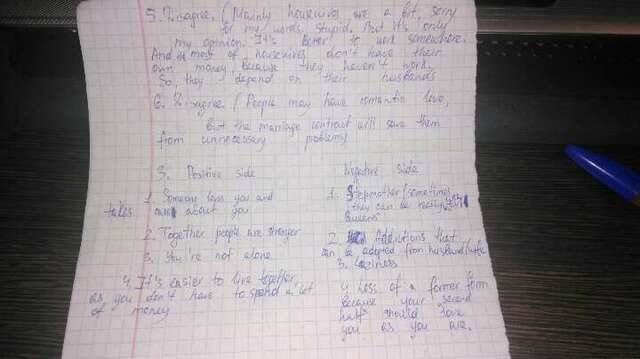 5. Disagree. (Mainly housewives are a bit, sorry
for my words, stupid. But it's only
my opinion. It's better to work somewhere.
And most of housewives don't have their
own money, because they haven't work.
So, they depend on their husbands
6. Disagree. (People may have romantic love,
but the marriage contract will save them
from unnecessary problems)
3. Positive side
1. Someone loves you and
takes care about you
2. Together people are stronger
3. You're not alone
4. It's easier to live together,
as you don't have to spend a lot
of money
Negative side
1. Stepmother (sometimes
they can be
queens
2. Addictions that
can be adopted from husband/wife
3. Laziness
4. Loss of a former form
because your second
half should love
you as you are.